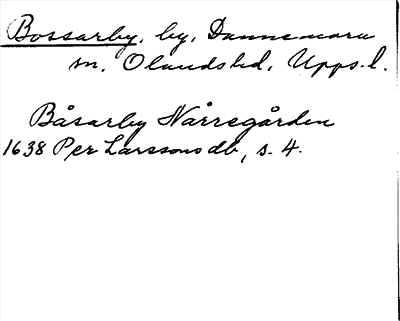 Bossarby, by, Dannemora
sn, Olands hd, Upps. l.
Båsarby Nårregården
1638 Per Larssons db, s. 4.